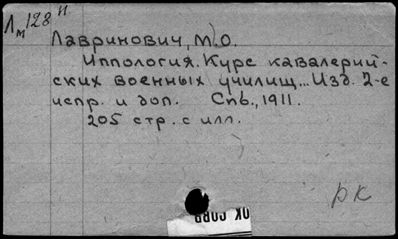 Лм128 и.
Лавринович, М.О.
Иппология. Курс кавалерий-
ских военных училищ... Изд. 2-е
испр. и доп. Спб., 1911.
205 стр. с илл.
рк